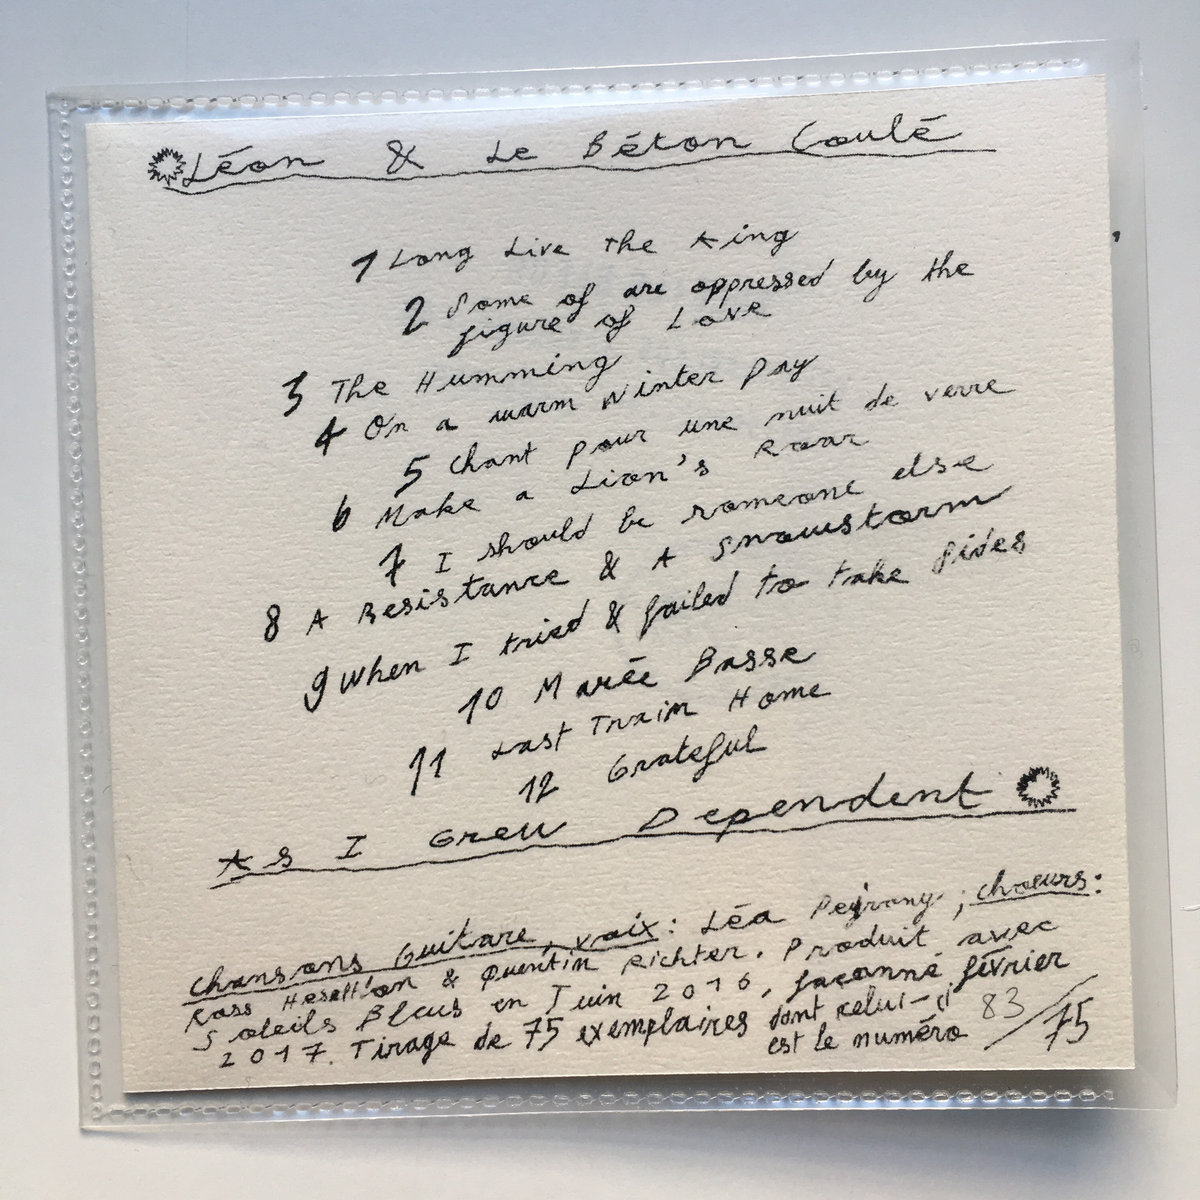 Léon & Le Béton Coulé
1 Long Live The King
2 Some of are oppressed by the
figure of Love
3 The Humming
4 On a warm Winter Day
5 Chant pour une nuit de verre
6 Make a Lion's Roar
7 I should be someone else
8 A Resistance & A Snowstorm
9 When I tried & failed to take sides
10 Marée Basse
11 Last Train Home
12 Grateful
As I Grew Dependent
Chansons Guitare, voix : Léa ; choeurs :
Ross & Quentin Richter. Produit avec
Soleils Bleus en Juin 2016, façonné février
2017. Tirage de 75 exemplaires dont celui-ci
est le numéro 83/75